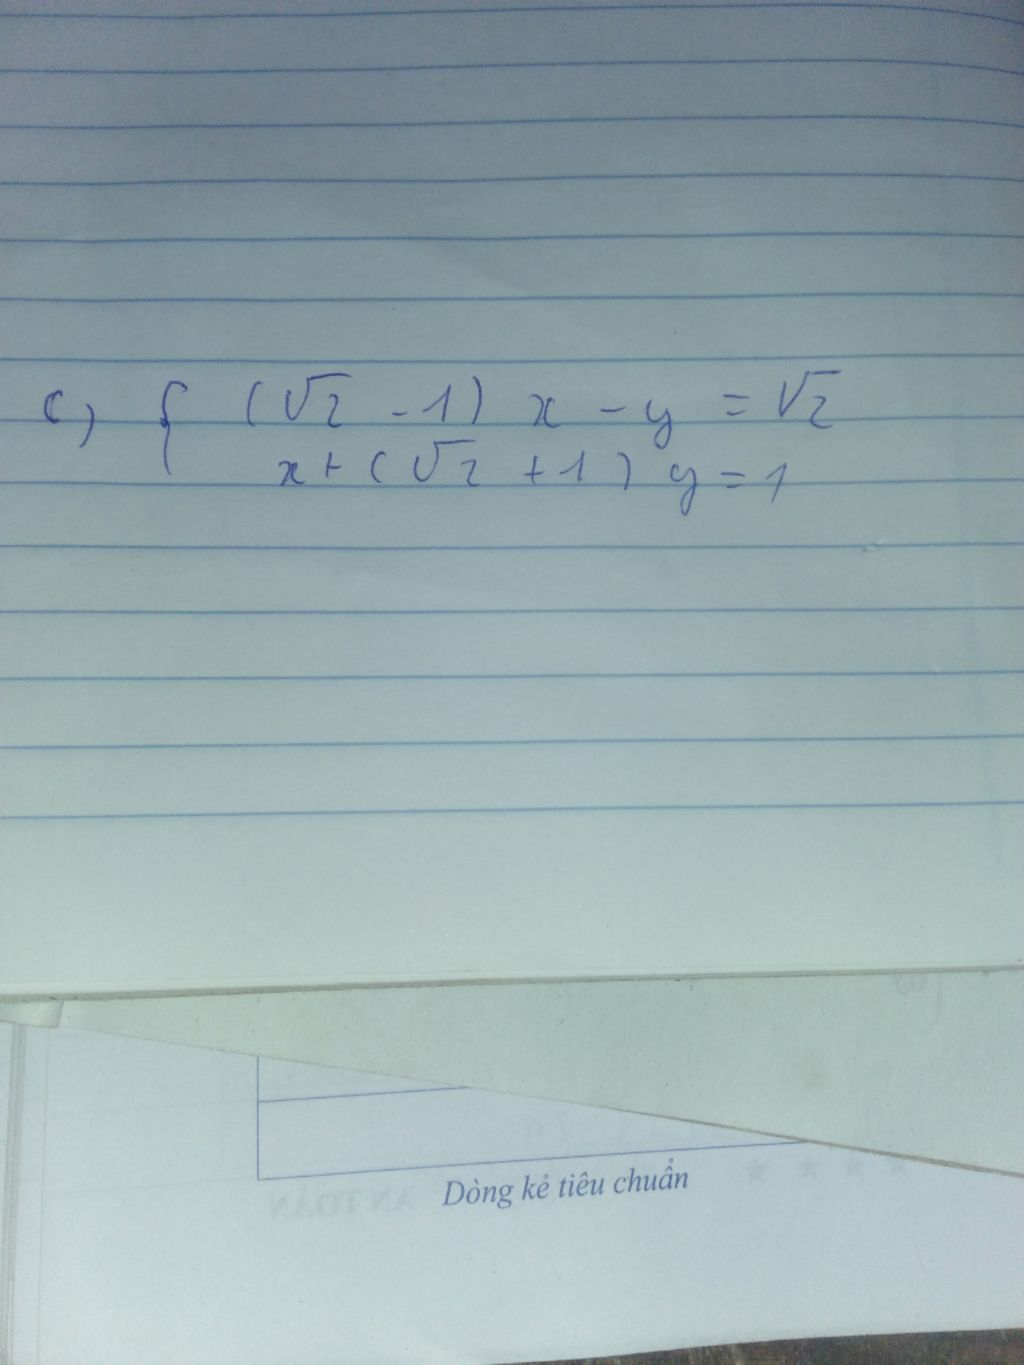 c) { (√2 - 1) x - y = √2
x + (√2 + 1) y = 1
Dòng kẻ tiêu chuẩn